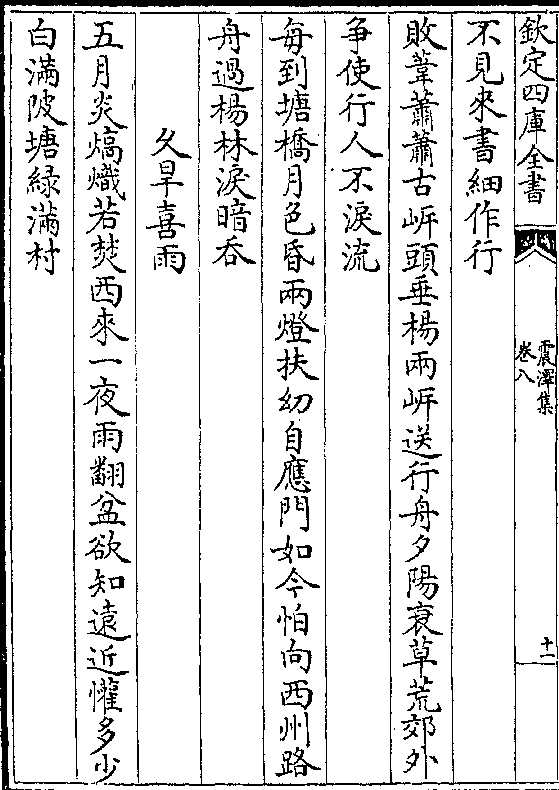 欽定四庫全書
震澤集
卷八
十一
不見來書細作行
敗葦蕭蕭古岍頭垂楊兩岍送行舟夕陽衰草荒郊外
争使行人不淚流
每到塘橋月色昏兩燈扶幼自應門如今怕向西州路
舟過楊林淚暗吞
久旱喜雨
五月炎熇熾若焚西來一夜雨翻盆欲知遠近懽多少
白滿陂塘緑滿村